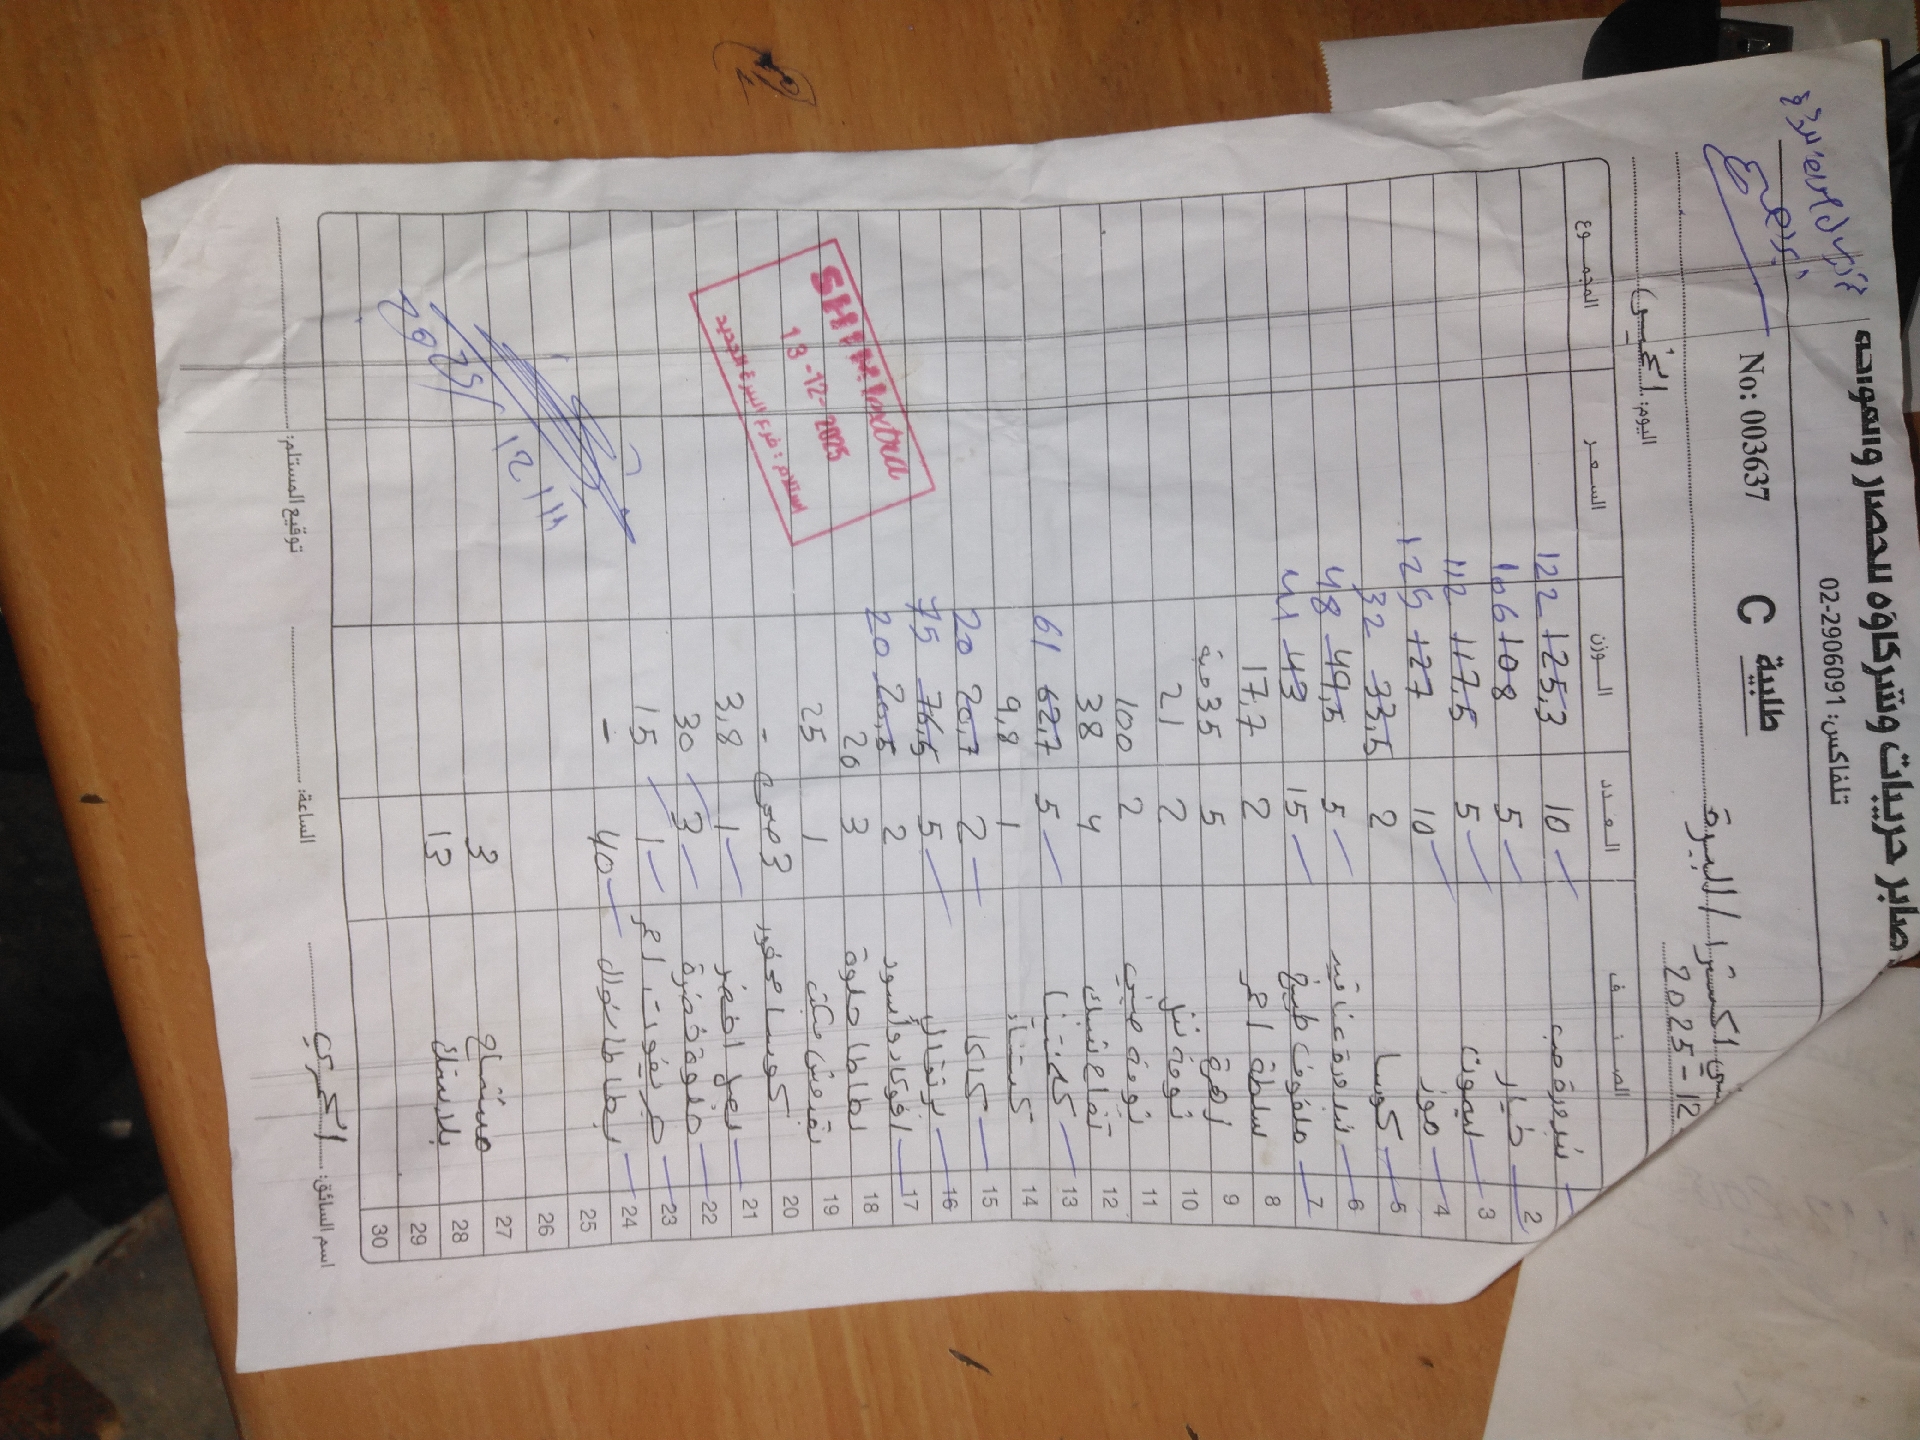 صابر حريبات وشركاؤه للخضار والفواكه
تلفاكس: 02-2906091
طلبية C No: 003637
اكسترا / البيرة
2025-12
اليوم: الخميس
الصنف العدد الوزن السعر المجموع
بندورة 10 125,3 122
2 خيار 5 108 106
3 ليمون 5 117,5 112
4 موز 10 127 125
5 كوسا 2 33,5 32
6 بندورة عناقيد 5 49,5 48
7 ملفوف طبيخ 15 43 41
8 سلطة احمر 2 17,7
9 زهرة 5 35 حبة
10 ثومة نتل 2 21
11 ثومة صيني 2 100
12 تفاح 4 38
13 كلمنتينا 5 62,7 61
14 كستناء 1 9,8
15 كاكا 2 20,7 20
16 برتقال 5 76,5 75
17 افوكادو اسود 2 20,5 20
18 بطاطا حلوة 3 26
19 1 25
20 كوسا محفور 3 صحن -
21 بصل اخضر 1 3,8
22 ملوخية خضرة 3 30
23 احمر 1 15
24 بطاطا 40 -
25
26
27 مشتاح 3
28 بلاستك 13
29
30
SHINI Extra
13-12-2025
استلام: فرع البيرة الجديد
اسم السائق: الساعة: توقيع المستلم: